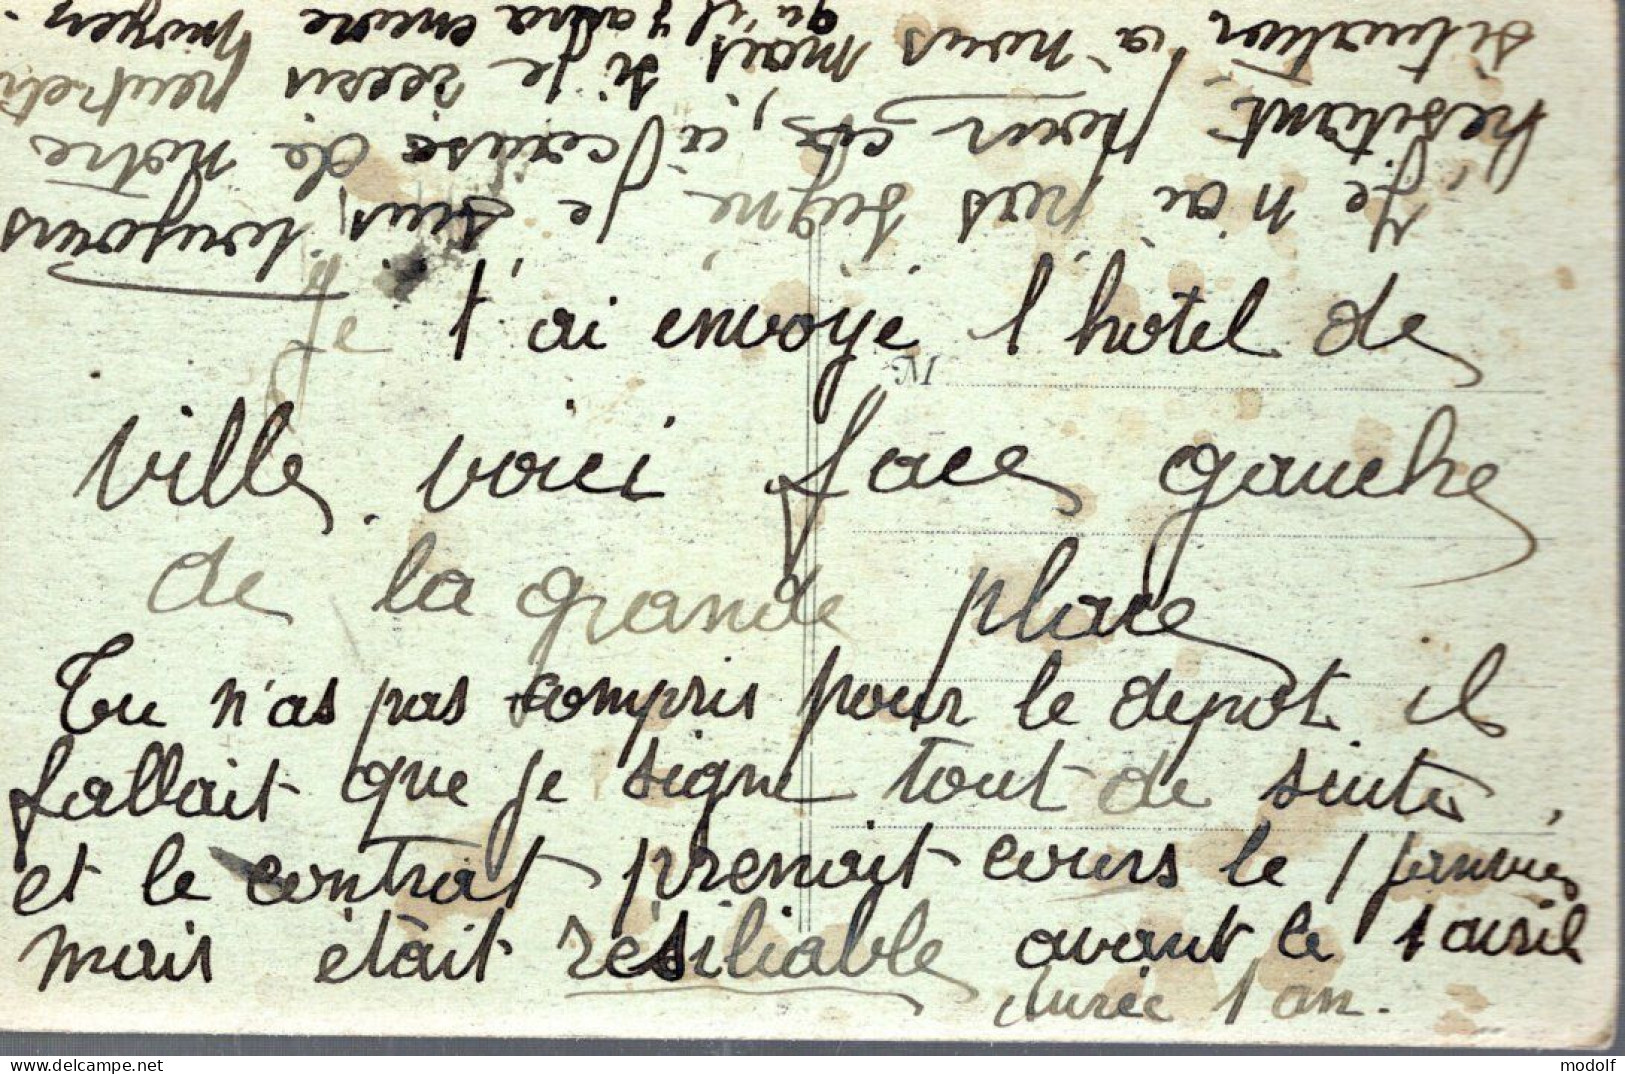 Je t'ai envoyé l'hotel de
ville voici face gauche
de la grande place
Tu n'as pas compris pour le depot il
fallait que je signe tout de suite,
et le contrat prenait cours le 1 janvier
mais était résiliable avant le 1 avril
durée 1 an.
Je n'ai pas signé, je suis toujours
hesitant pour ets, à cause de notre
situation à nous mais si je reçois peut etre
qu'il y aura encore moyen.
M
modolf